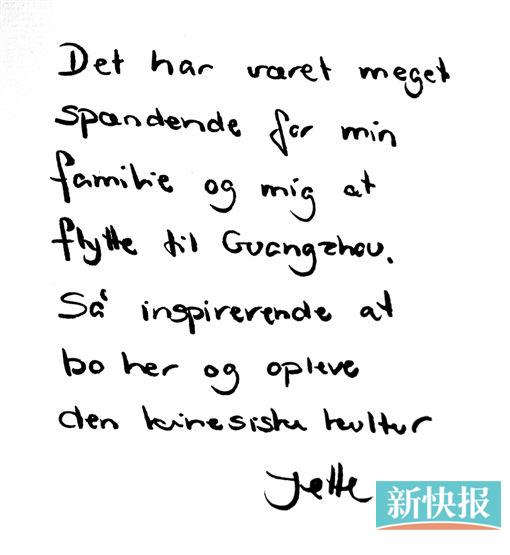 Det har været meget
spændende for min
familie og mig at
flytte til Guangzhou.
Så inspirerende at
bo her og opleve
den kinesiske kultur
Jette
新快报